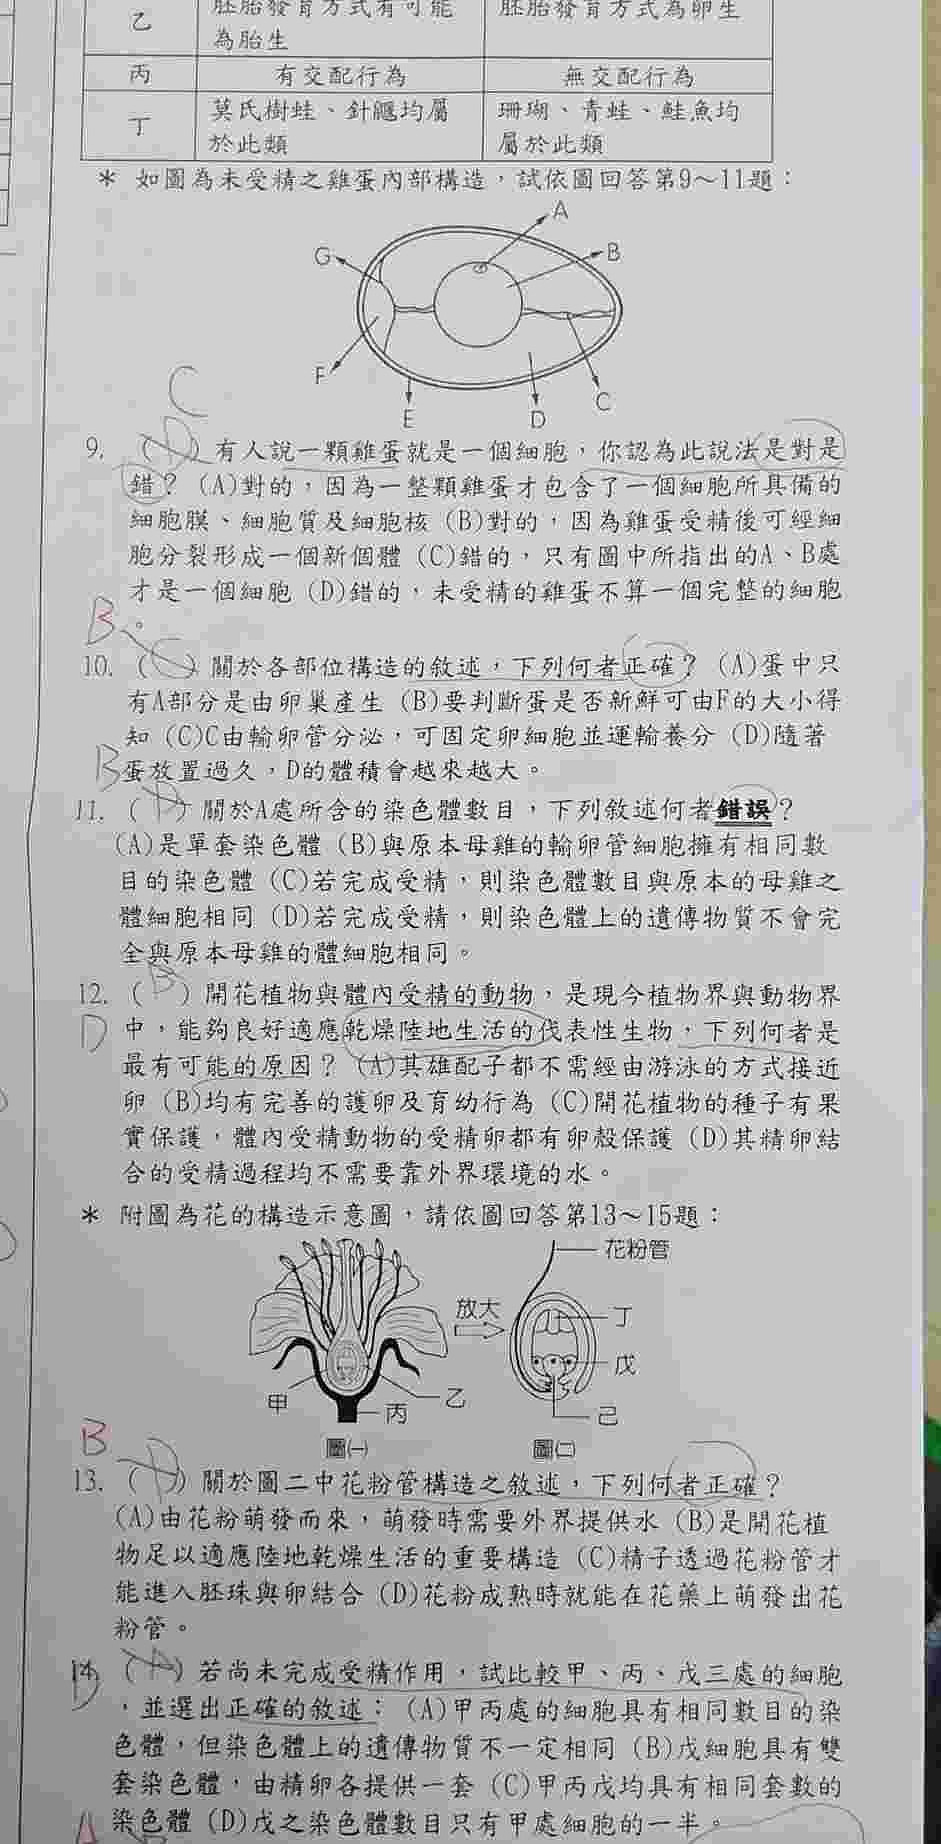 乙
胚胎發育方式有可能
為胎生
胚胎發育方式為卵生
丙
有交配行為
無交配行為
丁
莫氏樹蛙、針鼴均屬
於此類
珊瑚、青蛙、鮭魚均
屬於此類
* 如圖為未受精之雞蛋內部構造，試依圖回答第9～11題：
A
B
G
F
E
D
C
C
9. (D) 有人說一顆雞蛋就是一個細胞，你認為此說法是對是
錯？ (A)對的，因為一整顆雞蛋才包含了一個細胞所具備的
細胞膜、細胞質及細胞核 (B)對的，因為雞蛋受精後可經細
胞分裂形成一個新個體 (C)錯的，只有圖中所指出的A、B處
才是一個細胞 (D)錯的，未受精的雞蛋不算一個完整的細胞
。
B
10. (C) 關於各部位構造的敘述，下列何者正確？ (A)蛋中只
有A部分是由卵巢產生 (B)要判斷蛋是否新鮮可由F的大小得
知 (C)C由輸卵管分泌，可固定卵細胞並運輸養分 (D)隨著
蛋放置過久，D的體積會越來越大。
B
11. (D) 關於A處所含的染色體數目，下列敘述何者錯誤？
(A)是單套染色體 (B)與原本母雞的輸卵管細胞擁有相同數
目的染色體 (C)若完成受精，則染色體數目與原本的母雞之
體細胞相同 (D)若完成受精，則染色體上的遺傳物質不會完
全與原本母雞的體細胞相同。
12. (B) 開花植物與體內受精的動物，是現今植物界與動物界
D
中，能夠良好適應乾燥陸地生活的代表性生物，下列何者是
最有可能的原因？ (A)其雄配子都不需經由游泳的方式接近
卵 (B)均有完善的護卵及育幼行為 (C)開花植物的種子有果
實保護，體內受精動物的受精卵都有卵殼保護 (D)其精卵結
合的受精過程均不需要靠外界環境的水。
* 附圖為花的構造示意圖，請依圖回答第13～15題：
花粉管
放大
丁
戊
甲
乙
丙
己
圖(一)
圖(二)
B
13. (D) 關於圖二中花粉管構造之敘述，下列何者正確？
(A)由花粉萌發而來，萌發時需要外界提供水 (B)是開花植
物足以適應陸地乾燥生活的重要構造 (C)精子透過花粉管才
能進入胚珠與卵結合 (D)花粉成熟時就能在花藥上萌發出花
粉管。
14. (A) 若尚未完成受精作用，試比較甲、丙、戊三處的細胞
D
，並選出正確的敘述： (A)甲丙處的細胞具有相同數目的染
色體，但染色體上的遺傳物質不一定相同 (B)戊細胞具有雙
套染色體，由精卵各提供一套 (C)甲丙戊均具有相同套數的
染色體 (D)戊之染色體數目只有甲處細胞的一半。
A